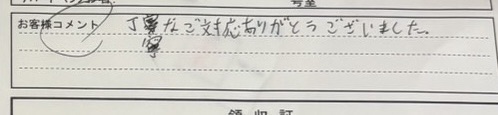 号室
お客様コメント 丁寧なご対応ありがとうございました。
領収証